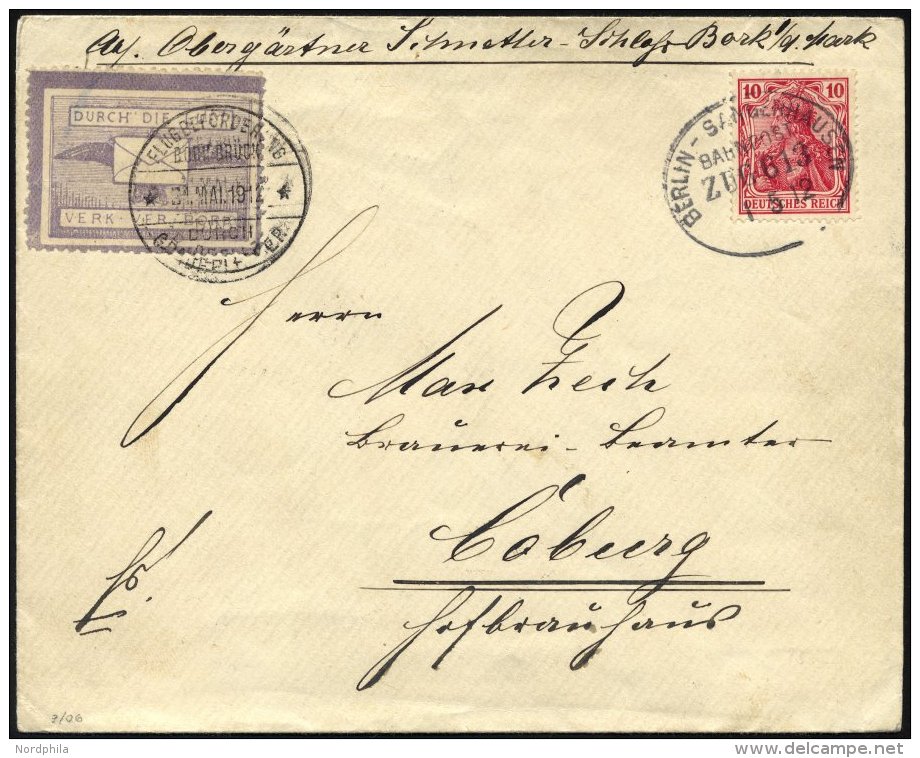 Obergärtner Schmetter - Schloss Bork i/d. Mark
DURCH DIE
VERK
FLUGBEFÖRDERUNG
BORK-BRÜCK
MAI.1912
DURCH
BERLIN - SANGERHAUSEN
BAHNPOST
ZUG 613
5 12
10 10
DEUTSCHES REICH
Herrn
Max Zech
Brauerei - Beamter
Coburg
Hofbrauhaus
3/06
Nordphila
www.delcampe.net